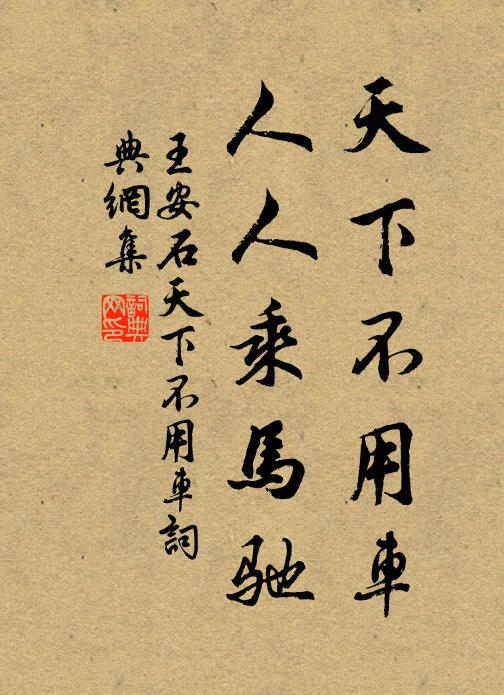 天下不用車
人人乘馬馳
王安石天下不用車詞
典網集
詞典
网印